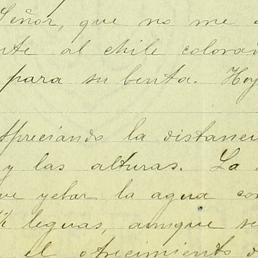 Señor, que no me
al chile colora
para su benta. Hoy
Apreciando la distanci
y las alturas. La
yebar la agua con
leguas, aunque se
el ofrecimiento d